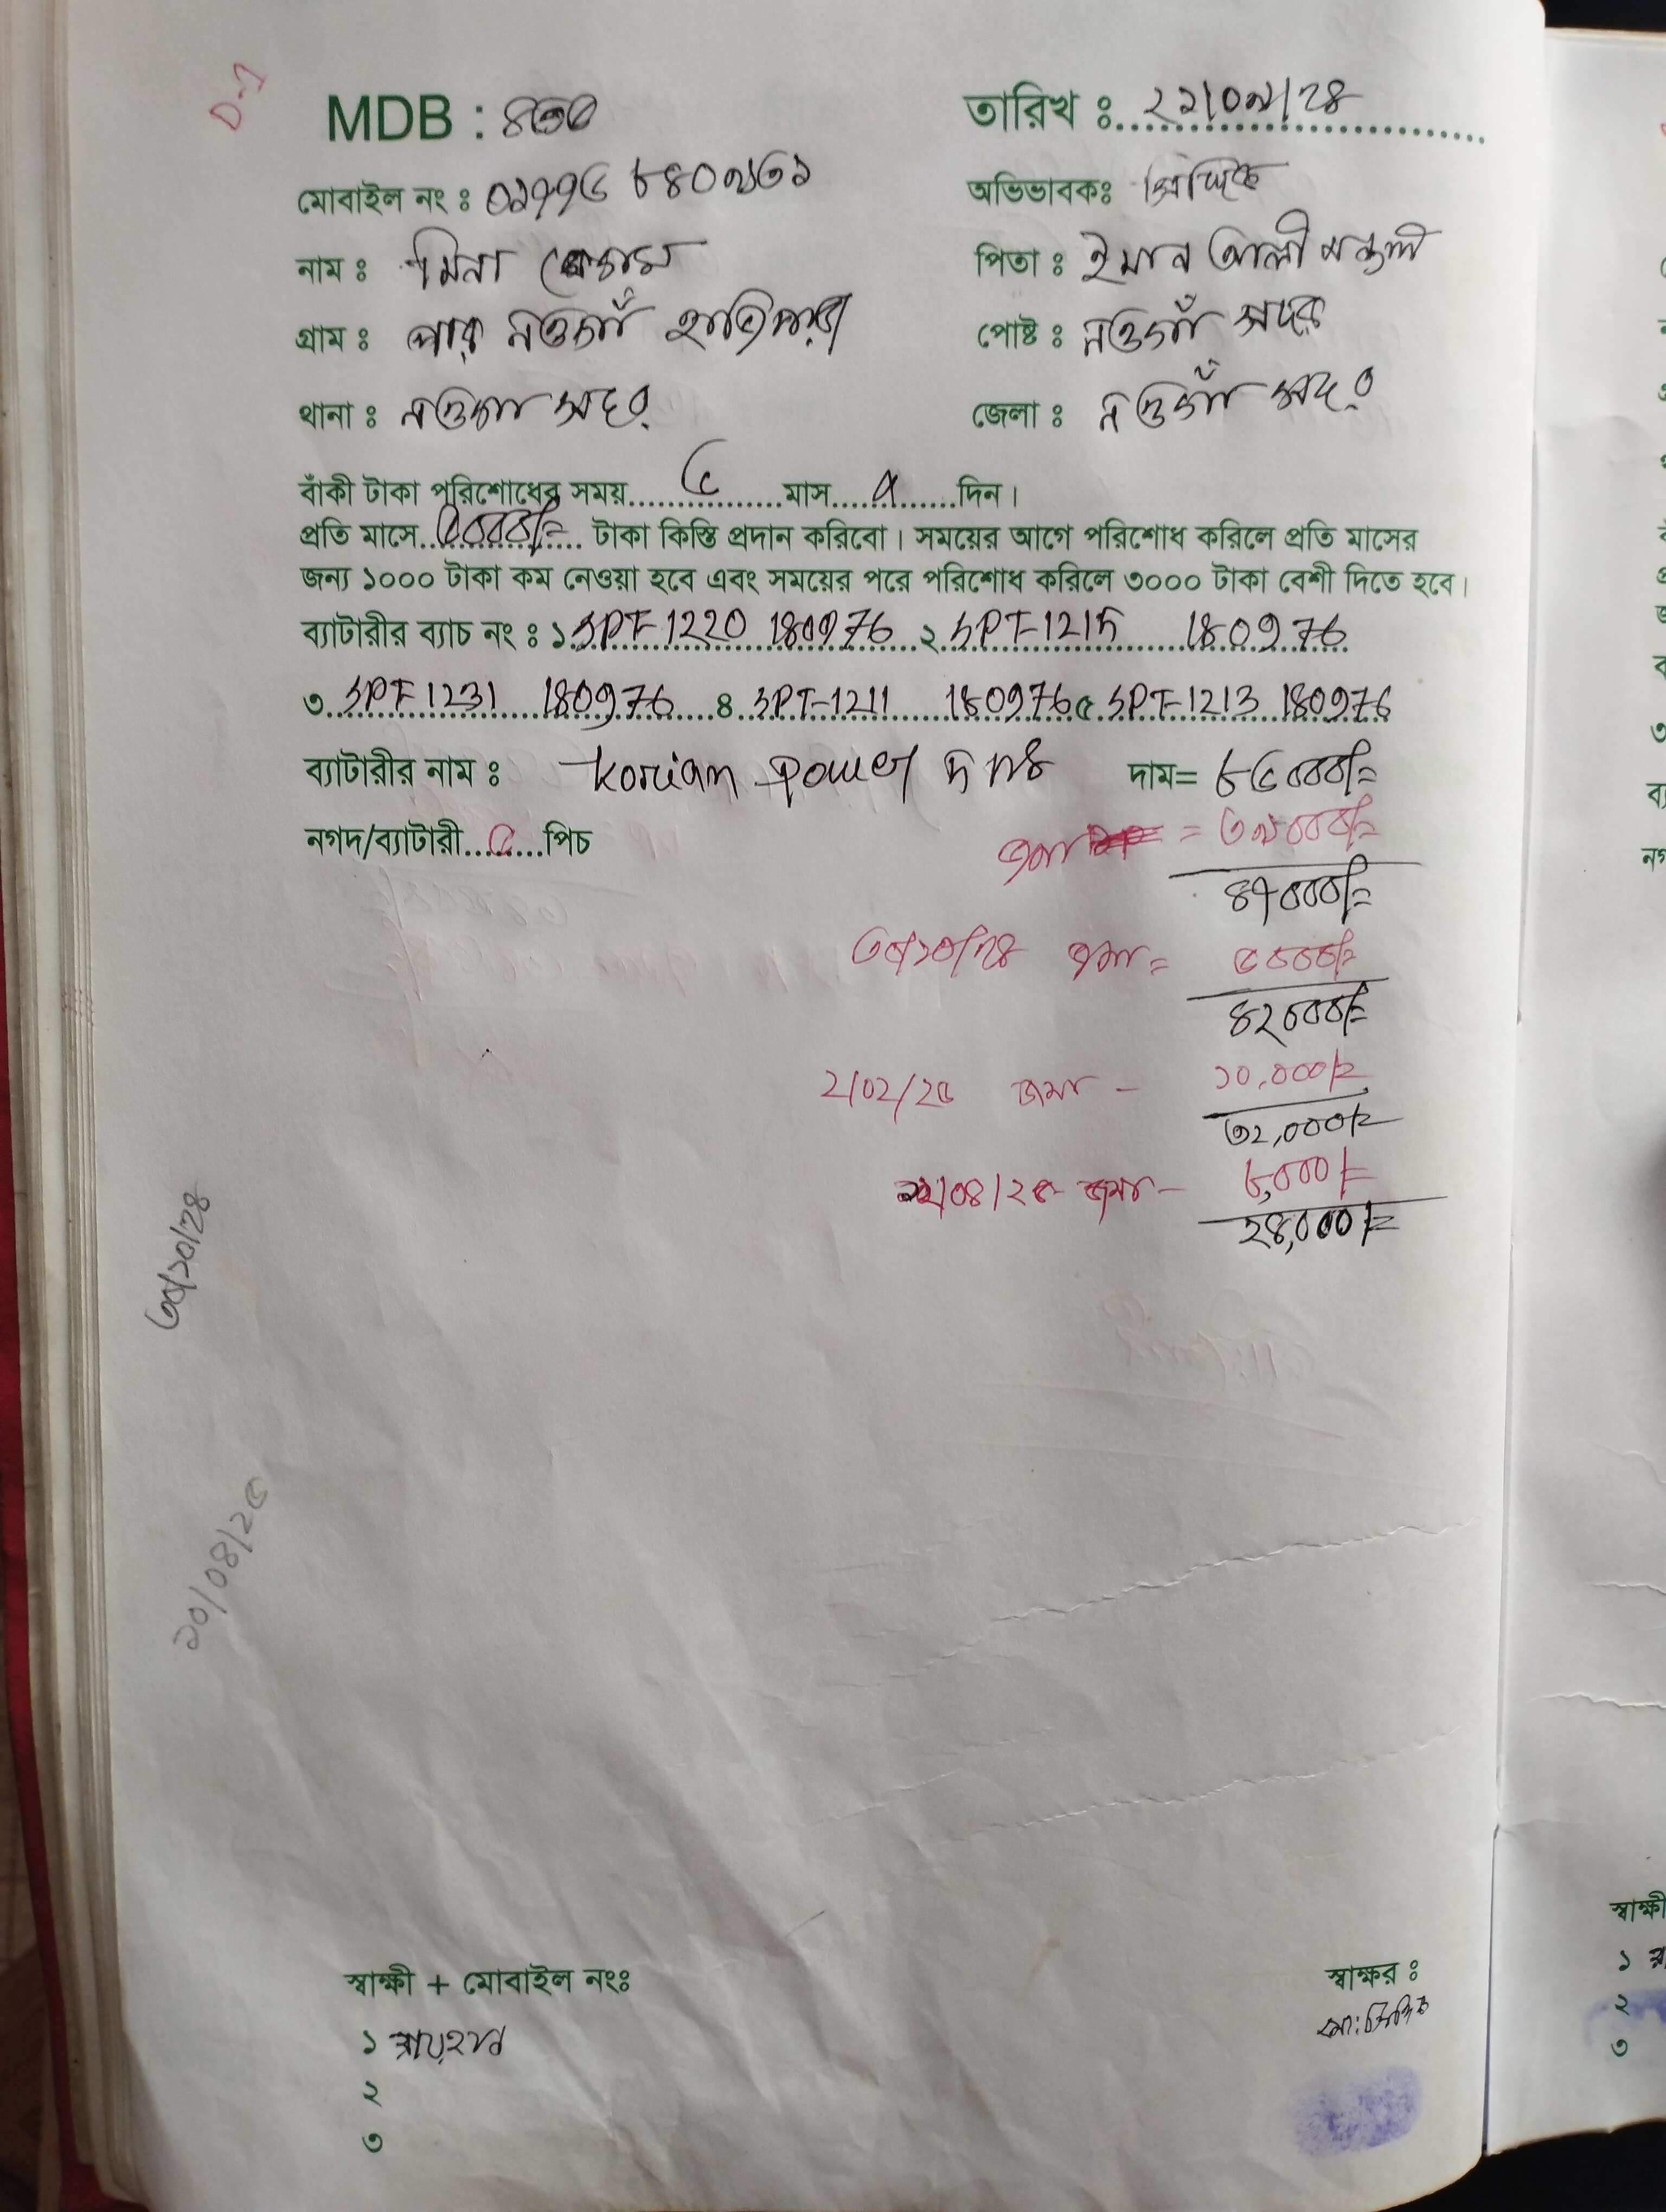 D-1
MDB : ৪৩০ তারিখ ঃ ২১/০৯/২৪
মোবাইল নং ঃ ০১৭৭৬ ৮৪০৯৩১ অভিভাবকঃ
নাম ঃ মিনা বেগম পিতা ঃ ইমান আলী মন্ডল
গ্রাম ঃ পার নওগাঁ পোষ্ট ঃ নওগাঁ সদর
থানা ঃ নওগা সদর জেলা ঃ নওগাঁ সদর
বাঁকী টাকা পরিশোধের সময়......৫......মাস.........দিন।
প্রতি মাসে.. ৫০০০/= .. টাকা কিস্তি প্রদান করিবো। সময়ের আগে পরিশোধ করিলে প্রতি মাসের
জন্য ১০০০ টাকা কম নেওয়া হবে এবং সময়ের পরে পরিশোধ করিলে ৩০০০ টাকা বেশী দিতে হবে।
ব্যাটারীর ব্যাচ নং ঃ ১ SPT-1220 180976 ২ SPT-1215 180976
৩ SPT-1231 180976 ৪ SPT-1211 180976 ৫ SPT-1213 180976
ব্যাটারীর নাম ঃ Korian Power দাম= ৮৬০০০/=
নগদ/ব্যাটারী...৫...পিচ জমা = ৩৯০০০/=
৪৭০০০/=
৩০/১০/২৪ জমা = ৫০০০/=
৪২০০০/=
2/02/২৫ জমা - ১০,০০০/=
৩২,০০০/=
/০৪/২৫ জমা - ৮,০০০/=
২৪,০০০/=
৩০/১০/২৪
২০/০৪/২৫
স্বাক্ষী + মোবাইল নংঃ স্বাক্ষর ঃ
১ রায়হান
২
৩